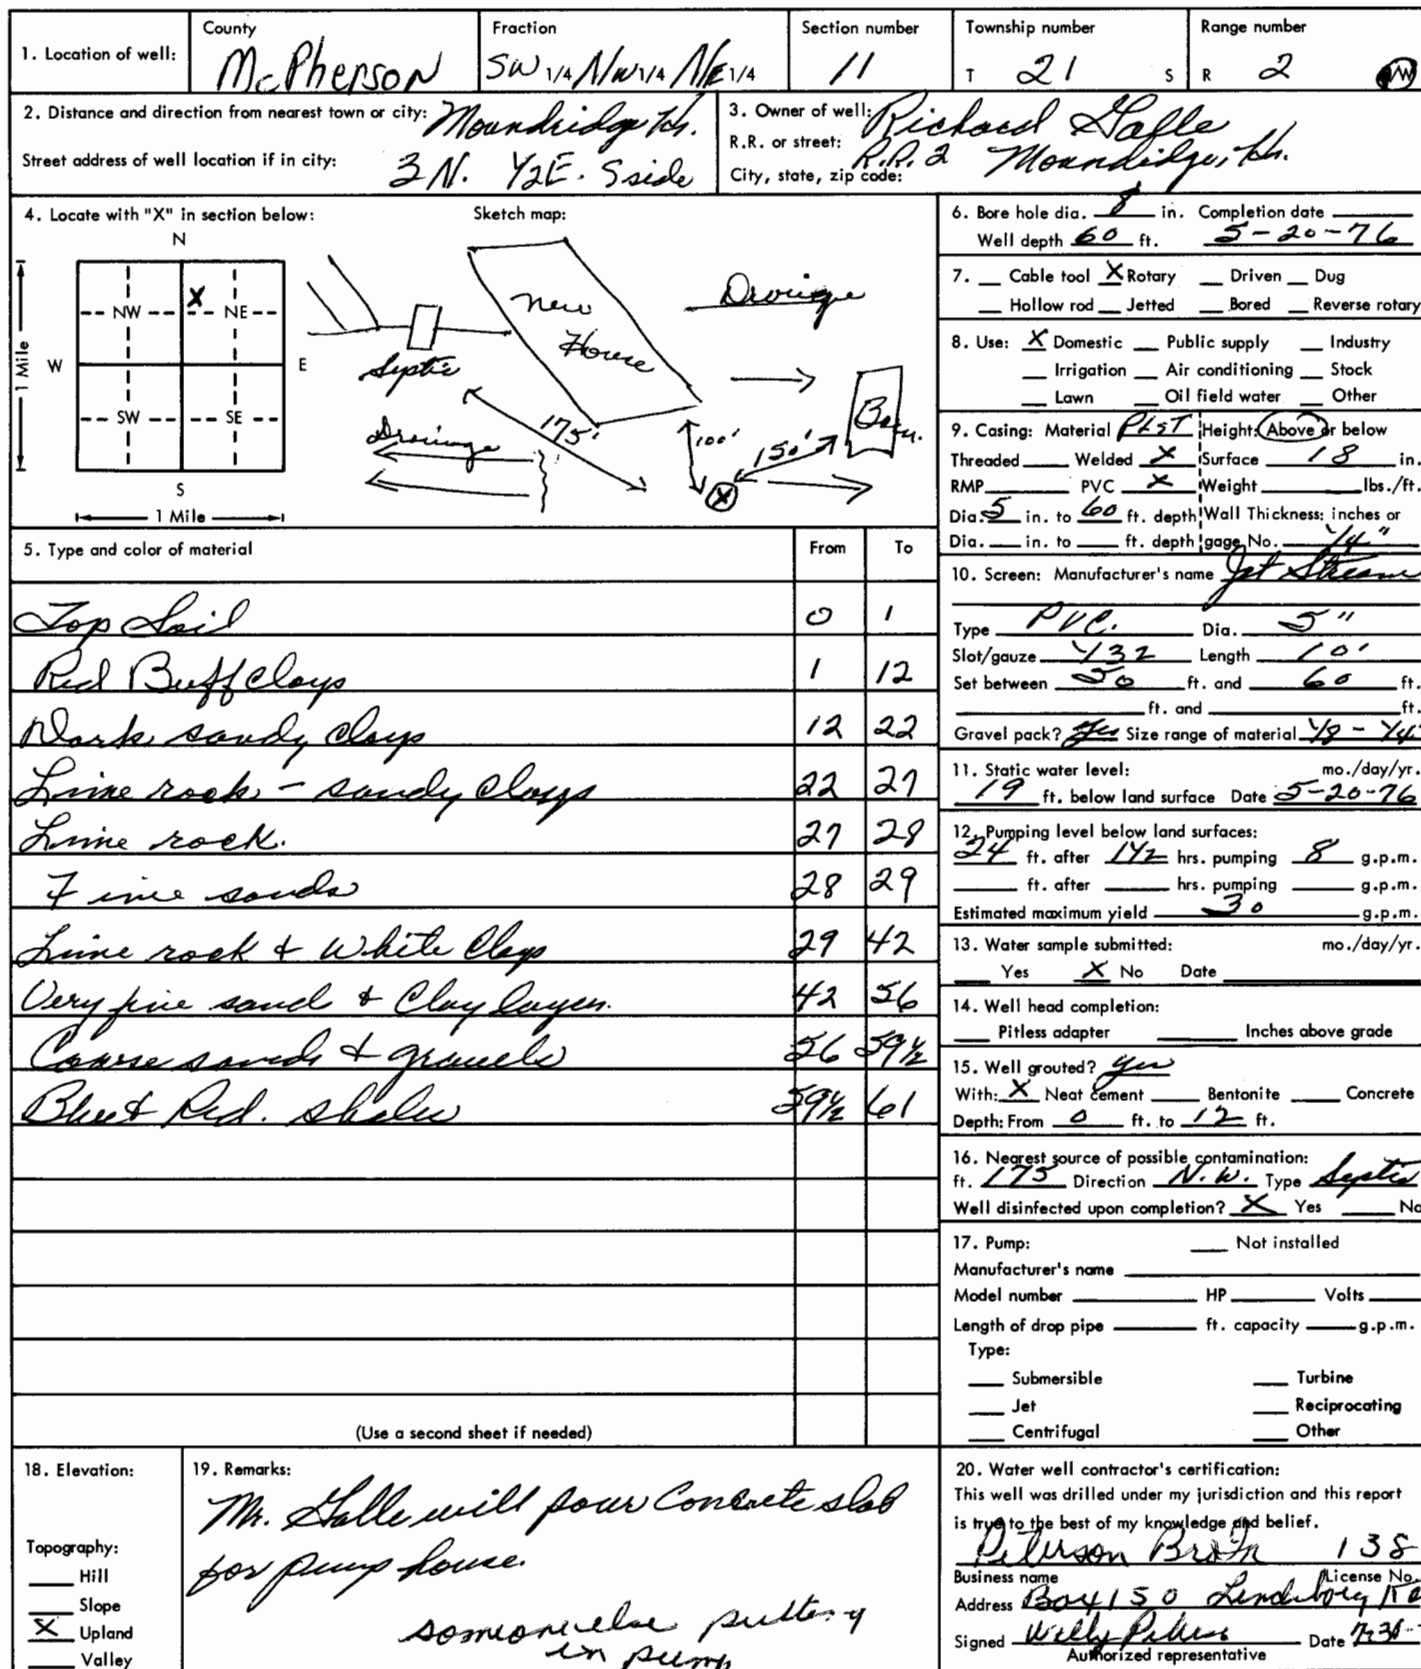 1. Location of well: County McPherson Fraction SW 1/4 NW 1/4 NE 1/4 Section number 11 Township number T 21 S Range number R 2 E/W
2. Distance and direction from nearest town or city: Moundridge Ks.
Street address of well location if in city: 3 N. 1/2E. S side
3. Owner of well: Richard Galle
R.R. or street: R.R. 2
City, state, zip code: Moundridge, Ks.
4. Locate with "X" in section below:
N
NW X NE
W E
SW SE
S
1 Mile
1 Mile
Sketch map:
New House
Septic
Drainage
Drainage
Barn.
175'
100'
150'
X
5. Type and color of material From To
Top Soil 0 1
Red Buff Clays 1 12
Dark sandy Clays 12 22
Lime rock - sandy Clays 22 27
Lime rock. 27 28
Fine sands 28 29
Lime rock & White Clays 29 42
Very fine sand & Clay layers. 42 56
Coarse sands & gravels 56 59 1/2
Blue & Red. shales 59 1/2 61
(Use a second sheet if needed)
6. Bore hole dia. 8 in. Completion date
Well depth 60 ft. 5-20-76
7. Cable tool X Rotary Driven Dug
Hollow rod Jetted Bored Reverse rotary
8. Use: X Domestic Public supply Industry
Irrigation Air conditioning Stock
Lawn Oil field water Other
9. Casing: Material PLST Height: Above or below
Threaded Welded X Surface 18 in.
RMP PVC X Weight lbs./ft.
Dia. 5 in. to 60 ft. depth Wall Thickness: inches or
Dia. in. to ft. depth gage No. 1/4"
10. Screen: Manufacturer's name Jet Stream
Type PVC. Dia. 5"
Slot/gauze 1/32 Length 10'
Set between 50 ft. and 60 ft.
ft. and ft.
Gravel pack? Yes Size range of material 1/8 - 1/4"
11. Static water level: mo./day/yr.
19 ft. below land surface Date 5-20-76
12. Pumping level below land surfaces:
24 ft. after 1 1/2 hrs. pumping 8 g.p.m.
ft. after hrs. pumping g.p.m.
Estimated maximum yield 30 g.p.m.
13. Water sample submitted: mo./day/yr.
Yes X No Date
14. Well head completion:
Pitless adapter Inches above grade
15. Well grouted? Yes
With: X Neat cement Bentonite Concrete
Depth: From 0 ft. to 12 ft.
16. Nearest source of possible contamination:
ft. 175 Direction N.W. Type Septic
Well disinfected upon completion? X Yes No
17. Pump: Not installed
Manufacturer's name
Model number HP Volts
Length of drop pipe ft. capacity g.p.m.
Type:
Submersible Turbine
Jet Reciprocating
Centrifugal Other
18. Elevation:
Topography:
Hill
Slope
X Upland
Valley
19. Remarks:
Mr. Galle will pour Concrete slab
for pump house.
someone else putting
in pump
20. Water well contractor's certification:
This well was drilled under my jurisdiction and this report
is true to the best of my knowledge and belief.
Peterson 138
Business name License No.
Address Box 150 Lindsborg
Signed Date 7-30-
Authorized representative